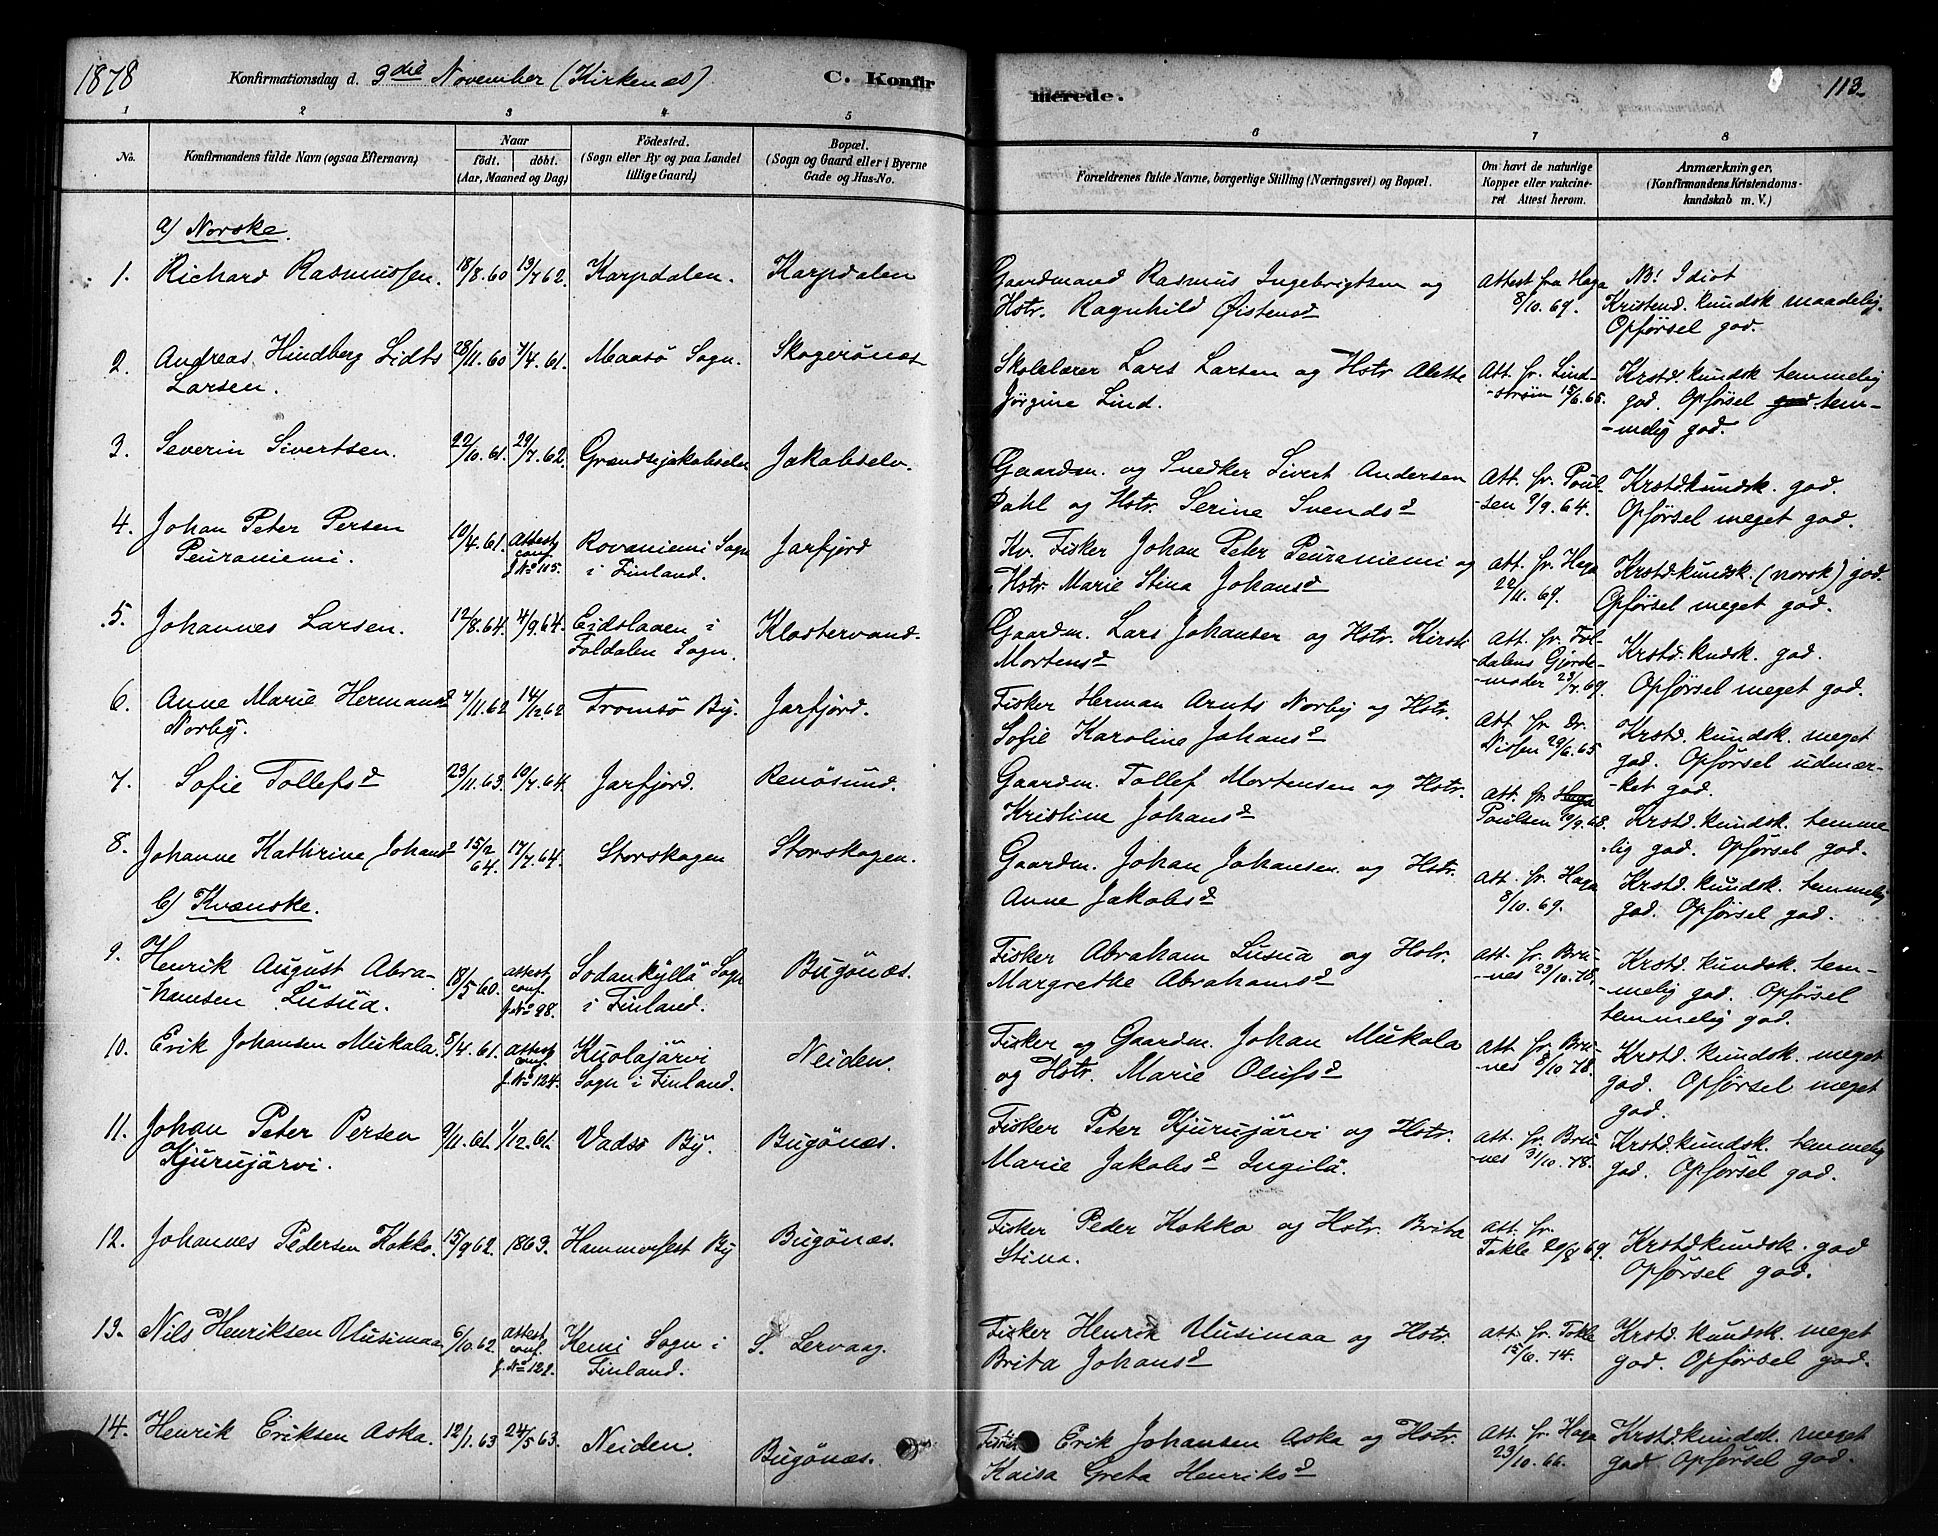 1878 Konfirmationsdag d. 3die November (Kirkenæs) C. Konfirmerede. 113
1 2 3 4 5 6 7 8
No. Konfirmandens fulde Navn (ogsaa Efternavn) Naar født. døbt. (Aar, Maaned og Dag) Födested. (Sogn eller By og paa Landet tillige Gaard) Bopæl. (Sogn og Gaard eller i Byerne Gade og Hus-No. Forældrenes fulde Navne, borgerlige Stilling (Næringsvei) og Bopæl. Om havt de naturlige Kopper eller vakcineret Attest herom. Anmærkninger, (Konfirmandens Kristendomskundskab m. V.)
a) Norske.
1. Richard Rasmussen. 18/8.60 13/7.62. Karpdalen. Karpdalen Gaardmand Rasmus Ingebrigtsen og Attest fra Haga NB! Idiot
Hstr. Ragnhild Øistensd 8/10.69. Kristend.kundsk maadelig.
Opförsel god.
2. Andreas Hindberg Lidts 28/11.60 7/4.61. Maasö Sogn. Skogerönæs Skolelærer Lars Larsen og Hstr Alette Att. fr. Lind- Krstd.kundsk temmelig
Larsen. Jörgine Lind. -ström 15/6.65. god. Opförsel god tem-
-melig god.
3. Severin Sivertsen. 22/10.61. 29/7.62. Grændsejakobselv Jakobselv. Gaardm. og Snedker Sivert Andersen Att. fr. Poul- Krstd.kundsk. god.
Dahl og Hstr. Serine Svendsd -sen 9/9.64. Opförsel meget god.
4. Johan Peter Persen 10/4.61. Attest Rovaniemi Sogn Jarfjord Kv. Fisker Johan Peter Peuraniemi og Att. fr. Haga Krstd.kundsk. (norsk) god.
Peuraniemi. conf. J.No 115. i Finland. Hstr. Marie Stina Johansd 22/11.69. Opförsel meget god.
5. Johannes Larsen. 12/8.64. 4/9.64. Eidslaaen i Klostervand. Gaardm. Lars Johansen og Hstr. Kirsti Att. fr. Fol- Krstd.kndsk. god.
Foldalen Sogn. Mortensd -dalens Gjorde- Opförsel meget god.
-moder 23/7.69.
6. Anne Marie Hermansd 7/11.62 14/12.62 Tromsö By. Jarfjord. Fisker Herman Arnts Norby og Hstr. Att. fr. Dr. Krstd.kundsk. meget
Norby. Sofie Karoline Johansd Nissen 29/6.65 god. Opförsel udmær-
-ket god.
7. Sofie Tollefsd 23/11.63. 10/7.64. Jarfjord. Renösund. Gaardm. Tollef Mortensen og Hstr. Att. fr. Haga Krstd.kundsk. temme
Kristine Johansd Poulsen 19/9.68. -lig god. Opförsel god.
8. Johanne Kathrine Johansd 15/2 64. 17/7.64. Storskogen Storskogen. Gaardm. Johan Johansen og Hstr. Att. fr. Haga Krstd.kundsk. temmelig
Anne Jakobsd 8/10.69. god. Opförsel god.
b) Kvænske.
9. Henrik August Abra- 18/5.60. attest Sodankyllä Sogn Bugönæs. Fisker Abraham Lusua og Hstr. Att. fr. Bru- Krstd.kundsk. tem-
-hamsen Lusua. conf. J.No 98. i Finland. Margrethe Abrahamsd -nes 23/10.78. -melig god. Opförsel
temmelig god.
10. Erik Johansen Mukala. 8/4.61. attest Kuolajärvi Neiden. Fisker og Gaardm. Johan Mukala Att. fr. Bru- Krstd.kundsk. meget
conf. J.No 124. Sogn i Finland. og Hstr. Marie Olufsd -nes 8/10.78. god. Opförsel meget
god.
11. Johan Peter Persen 9/11.61. 1/12.61. Vadsö By. Bugönæs. Fisker Peter Kjurujärvi og Hstr. att. fr. Bru- Krstd.kundsk. temmelig
Kjurujärvi. Marie Jakobsd Ingilä. -nes 31/10.78. god. Opförsel god.
12. Johannes Pedersen Kokko. 15/9.62. 1863. Hammerfest By Bugönæs. Fisker Peder Kokko og Hstr. Brita att. fr. Krstd.kundsk. god
Stina. Tokle 20/8.69. Opförsel god.
13. Nils Henriksen Uusimaa 6/10.62 attest Kemi Sogn i S. Lervaag. Fisker Henrik Uusimaa og Hstr. att. fr. Tokle Krstd.kundsk. meget
conf. J.No 122. Finland. Brita Johansd 15/6.74. god. Opförsel god.
14. Henrik Eriksen Aska. 12/1.63 24/5.63. Neiden. Bugönæs. Fisker Erik Johansen Aska og Hstr. Att. fr. Haga Krstd.kundsk. meget
Kaisa Greta Henriksd 23/10.66. god Opförsel god.